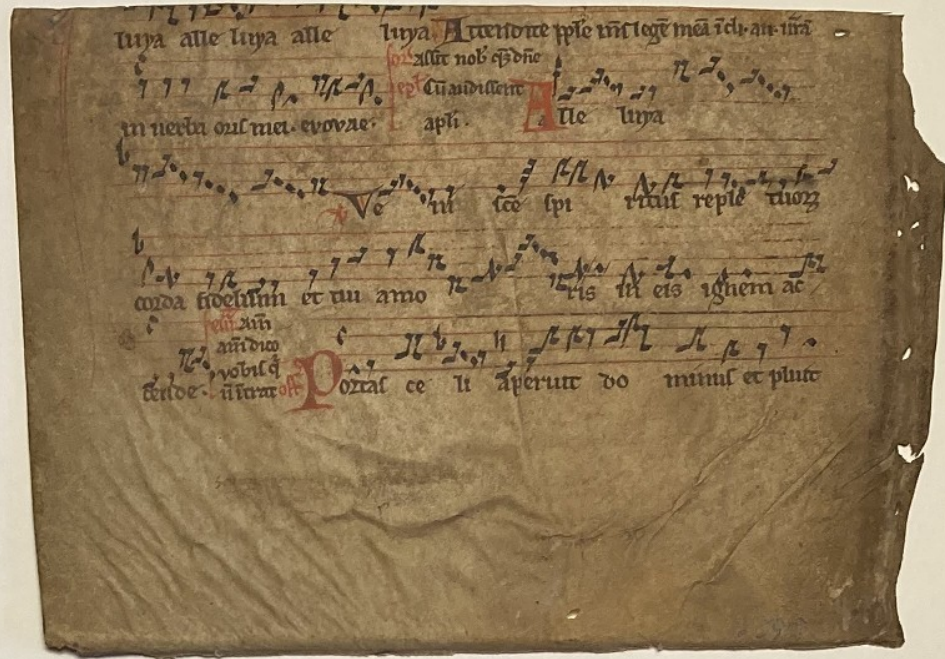 luya alle luya alle luya. Attendite pple ms legē meā īcli. au. urā
orō assit nob̄ qs dn̄e
in uerba oris mei. evovae. epl̄ Cū audissent apl̄i. Alle luya
Ve ni sc̄e spi ritus reple tuorꝝ
corda fidelium et tui amo ris in eis ignem ac
cende. eūḡ Am̄ am̄ dico vobis q̄ n̄ īrat off Portas ce li aperuit do minus et pluit